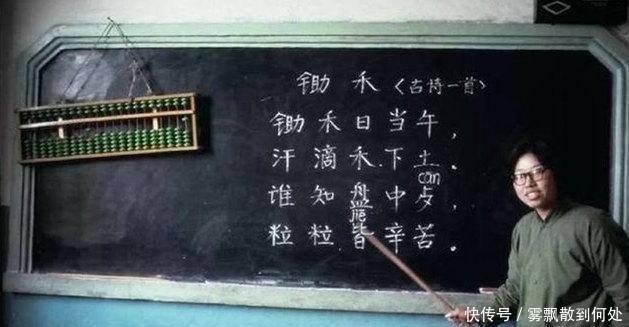 锄禾〈古诗一首〉
锄禾日当午，
汗滴禾下土。
can
谁知盘中歺，
粒粒皆辛苦。
快传号 / 雾飘散到何处